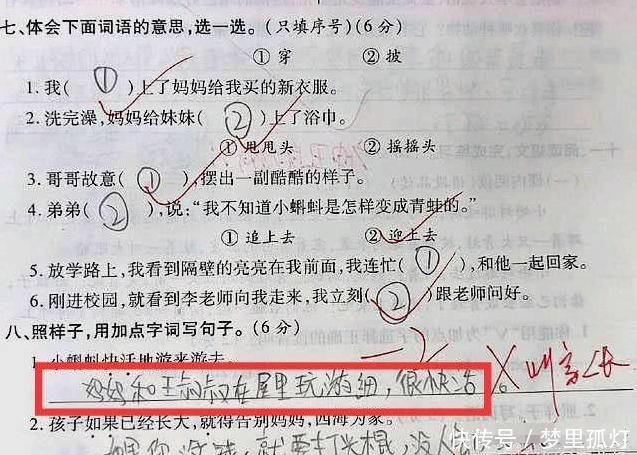 七、体会下面词语的意思,选一选。(只填序号)(6分)
①穿 ②披
1.我( ① )上了妈妈给我买的新衣服。
2.洗完澡,妈妈给妹妹( ② )上了浴巾。
①甩甩头 ②摇摇头
3.哥哥故意( ① ),摆出一副酷酷的样子。
4.弟弟( ② ),说:“我不知道小蝌蚪是怎样变成青蛙的。”
①追上去 ②迎上去
5.放学路上,我看到隔壁的亮亮在我前面,我连忙( ① ),和他一起回家。
6.刚进校园,就看到李老师向我走来,我立刻( ② )跟老师问好。
八、照样子,用加点字词写句子。(6分)
-2
1.小蝌蚪快活地游来游去。
妈妈和王叔叔在屋里玩游细,很快活。
叫家长
2.孩子如果已经长大,就得告别妈妈,四海为家。
快传号/梦里孤灯